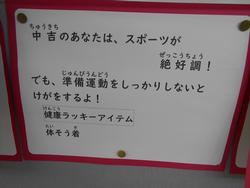 ちゅうきち
中吉のあなたは、スポーツが
ぜっこうちょう
絶好調！
じゅんびうんどう
でも、準備運動をしっかりしないと
けがをするよ！
けんこう
健康ラッキーアイテム
たい ぎ
体そう着